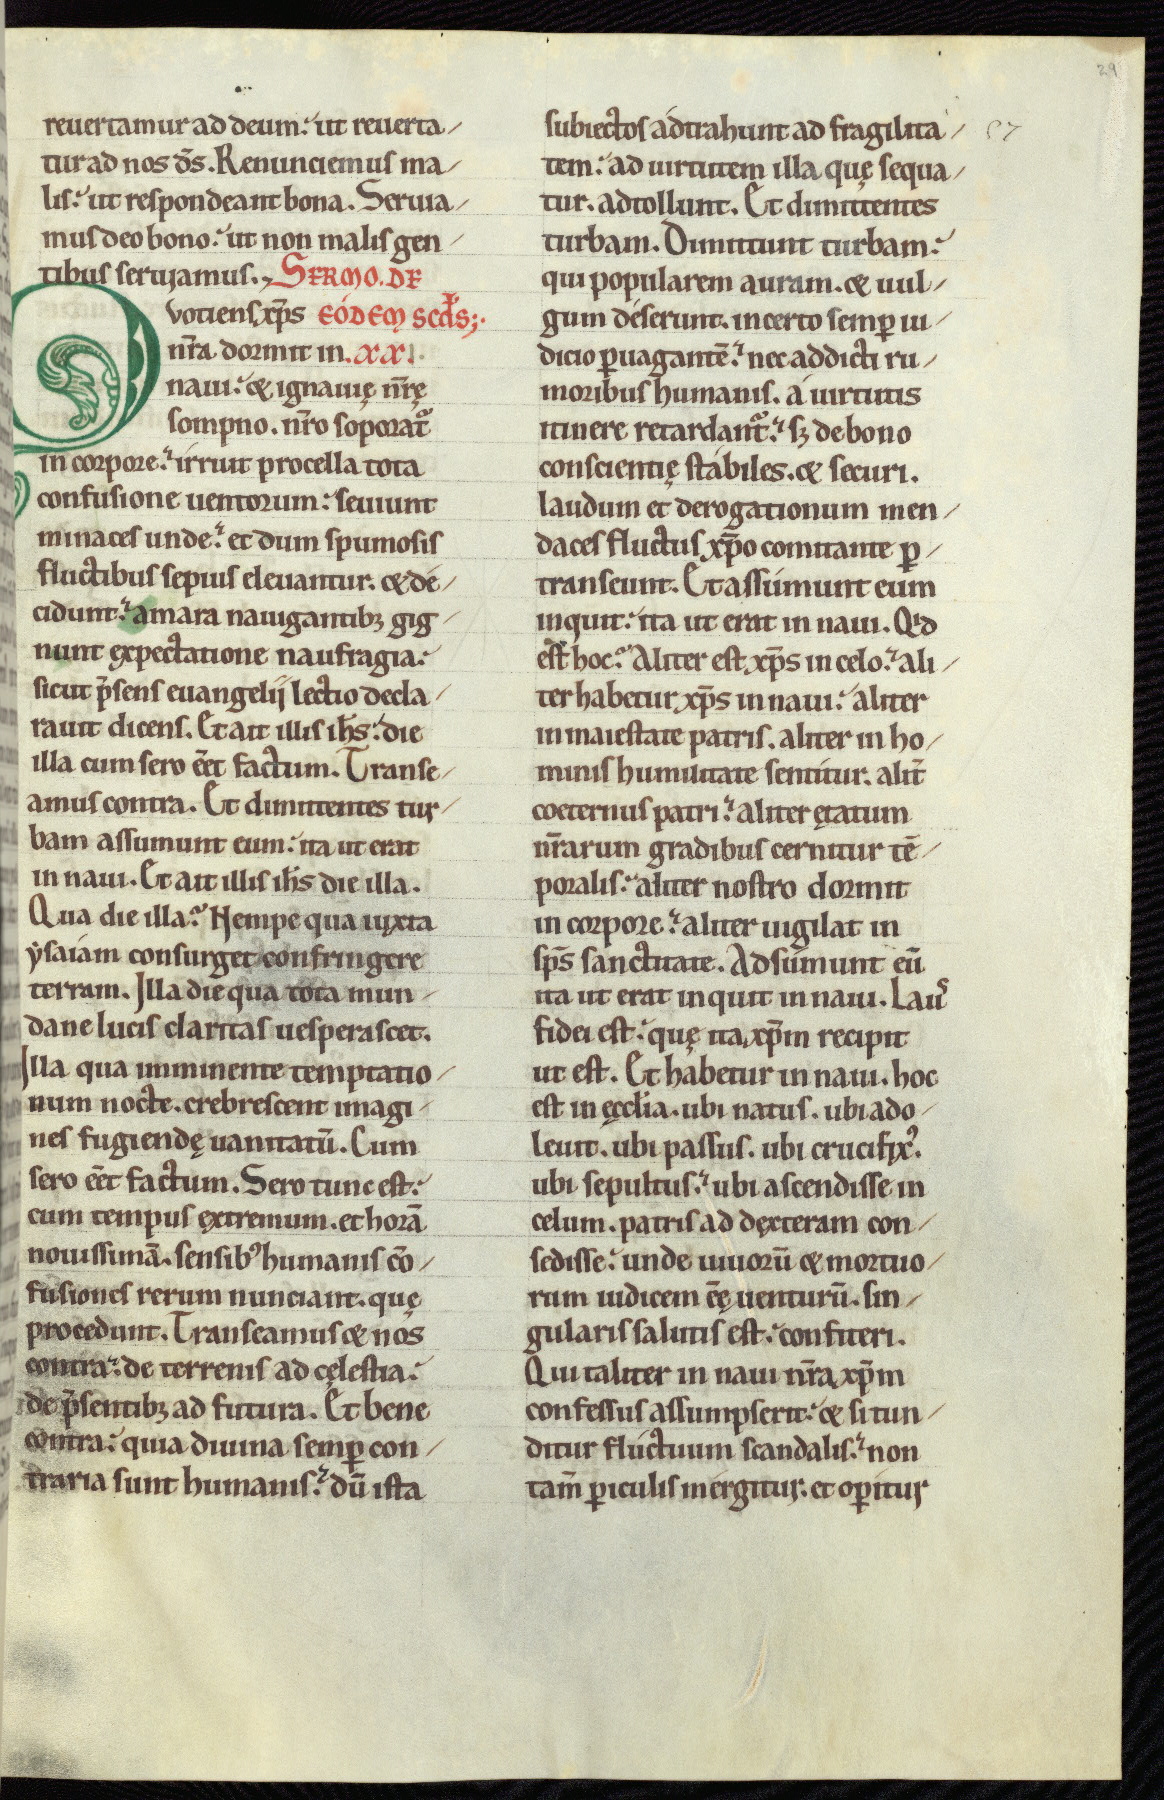 29
57
reuertamur ad deum: ut reuerta/
tur ad nos d̄s. Renunciemus ma/
lis: ut respondeant bona. Seruia/
mus deo bono: ut non malis gen/
tibus seruiamus. SERMO. DE
Quotiens xp̄s EODEM SCD̄S;
nr̄a dormit in. xx.
naui: & ignauię nr̄ę
sompno. nr̄o soporat᷑
in corpore: irruit procella tota
confusione uentorum: seuiunt
minaces unde: et dum spumosis
fluctibus sepius eleuantur. & de/
cidunt: amara nauigantibꝫ gig/
nunt expectatione naufragia:
sicut p̄sens euangelij lectio decla/
rauit dicens. Et ait illis ih̄s: die
illa cum sero eēt factum. Transe/
amus contra. Et dimittentes tur/
bam assumunt eum: ita ut erat
in naui. Et ait illis ih̄s die illa.
Qua die illa? Nempe qua iuxta
ẏsaiam consurget confringere
terram. Illa die qua tota mun/
dane lucis claritas uesperascet.
Illa qua imminente temptatio/
num nocte. crebrescent imagi/
nes fugiendę uanitatū. Cum
sero eēt factum. Sero tunc est:
cum tempus extremum. et horā
nouissimā. sensibꝰ humanis cō/
fusiones rerum nunciant. quę
procedunt. Transeamus & nos
contra: de terrenis ad cęlestia:
de p̄sentibꝫ ad futura. Et bene
contra: quia diuina semꝑ con/
traria sunt humanis: dū ista
subiectos adtrahunt ad fragilita/
tem: ad uirtutem illa quę sequa/
tur. adtollunt. Et dimittentes
turbam. Dimittunt turbam:
qui popularem auram. & uul/
gum deserunt. incerto semꝑ iu/
dicio ꝑuagantē: nec addicti ru/
moribus humanis. a uirtutis
itinere retardant᷑: sꝫ de bono
conscientię stabiles. & securi.
laudum et derogationum men/
daces fluctus xp̄o comitante ꝑ/
transeunt. Et assumunt eum
inquit: ita ut erat in naui. Qͥd
est hoc? Aliter est xp̄s in celo: ali/
ter habetur xp̄s in naui: aliter
in maiestate patris. aliter in ho/
minis humilitate sentitur. alit̄
coeternus patri: aliter ętatum
nr̄arum gradibus cernitur tē/
poralis: aliter nostro dormit
in corpore: aliter uigilat in
sp̄s sanctitate. Adsumunt eū
ita ut erat inquit in naui. Lauˢ
fidei est: quę ita xp̄m recipit
ut est. Et habetur in naui. hoc
est in ęccl̄ia. ubi natus. ubi ado/
leuit. ubi passus. ubi crucifixꝰ.
ubi sepultus: ubi ascendisse in
celum. patris ad dexteram con/
sedisse: unde uiuorū & mortuo/
rum iudicem eēę uenturū. sin/
gularis salutis est: confiteri.
Qui taliter in naui nr̄a xp̄m
confessus assumpserit: & si tun/
ditur fluctuum scandalis: non
tam̄ ꝑiculis mergitur. et oꝑitur